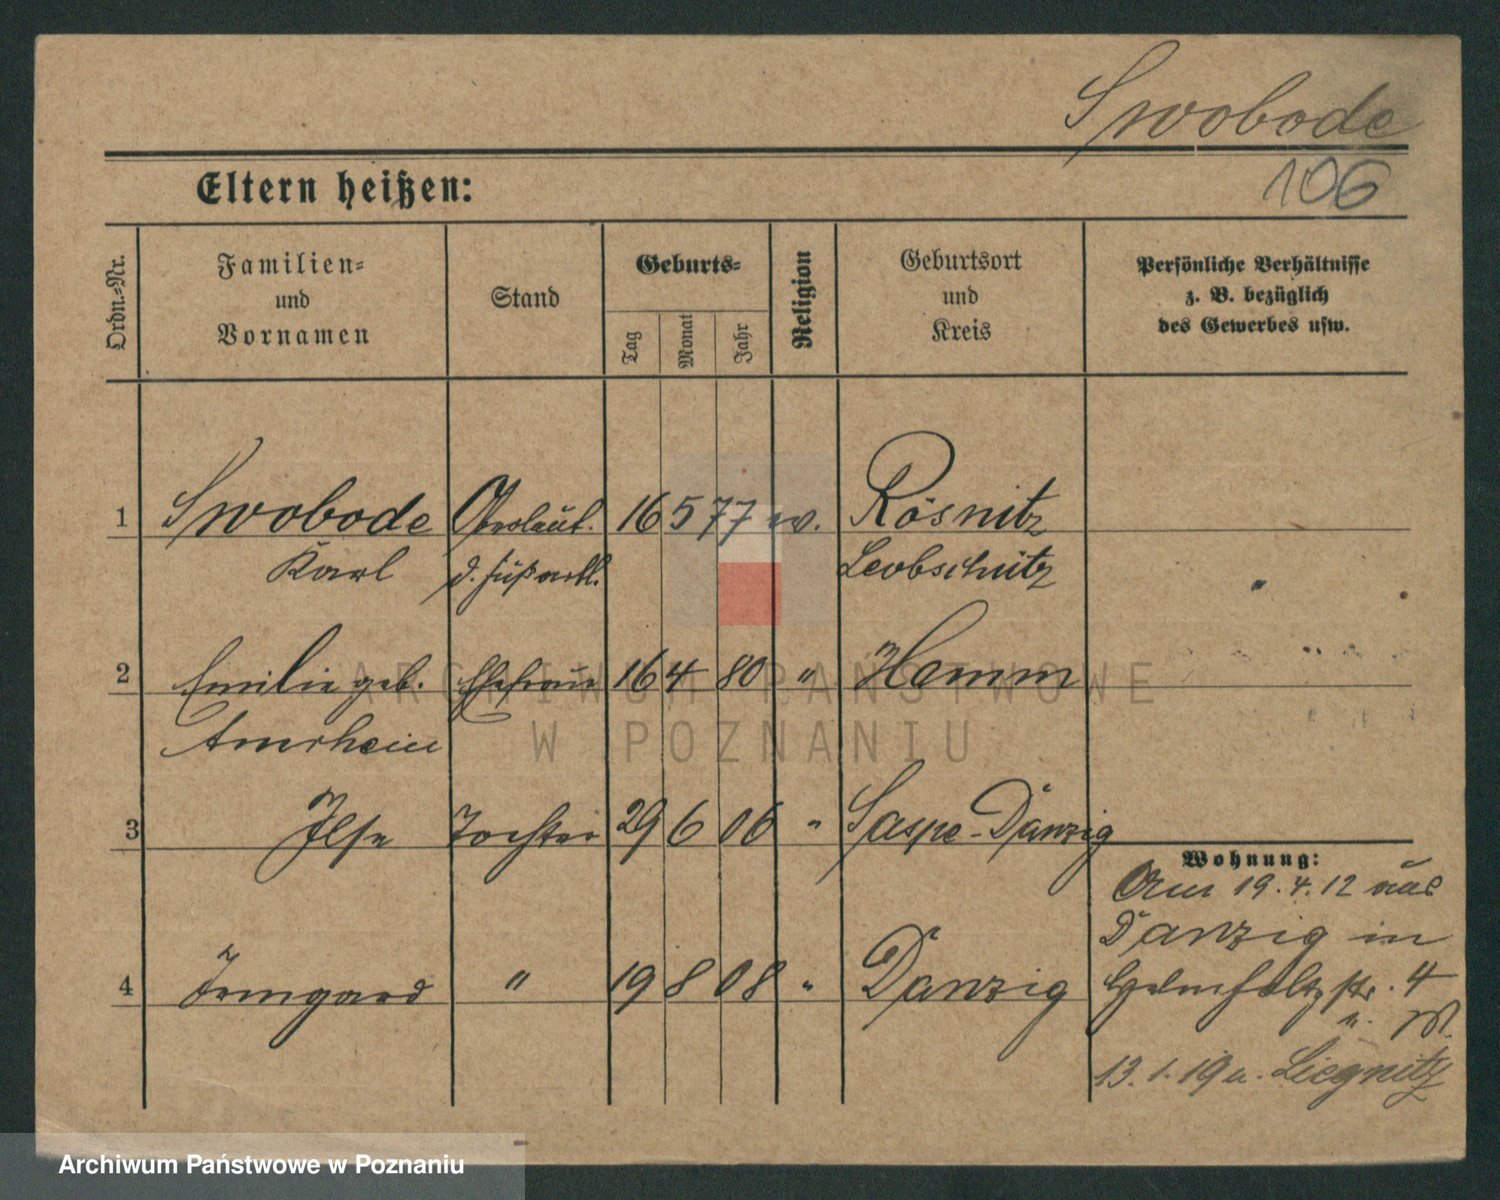 Swobode
106
Eltern heißen:
Ordn.=Nr.
Familien=
und
Vornamen
Stand
Geburts=
Tag
Monat
Jahr
Religion
Geburtsort
und
Kreis
Persönliche Verhältnisse
z. B. bezüglich
des Gewerbes usw.
1 Swobode Oberleut. 16 5 77 ev. Rösnitz
Karl d. Fußartl. Leobschütz
2 Emilie geb. Ehefrau 16 4 80 " Hamm
Amrhein
3 Ilse Tochter 29 6 06 " Saspe-Danzig
Wohnung:
Am 19.4.12 aus
Danzig in
4 Irmgard " 19 8 08 " Danzig
Helmholtzstr. 4
13.1.19 n. Liegnitz
ARCHIWUM PAŃSTWOWE
W POZNANIU
Archiwum Państwowe w Poznaniu